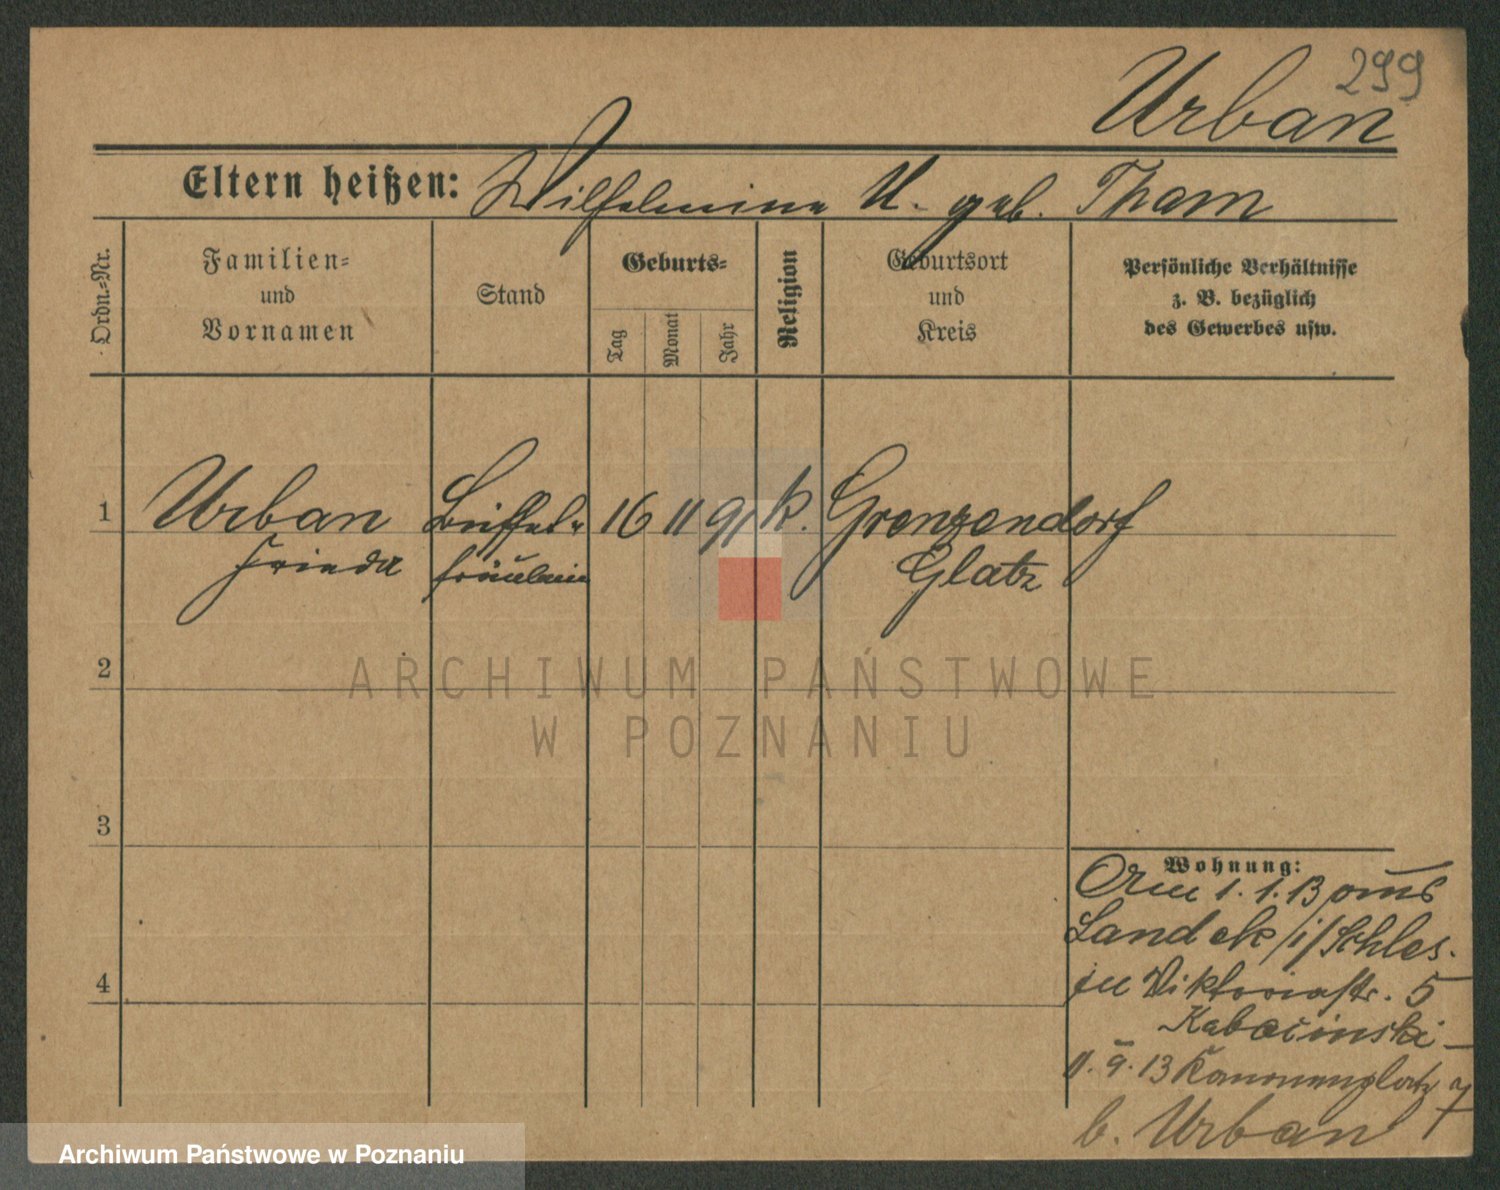 299
Urban
Eltern heißen: Wilhelmine U. geb. Tham
Ordn.-Nr.
Familien-
und
Vornamen
Stand
Geburts-
Tag
Monat
Jahr
Religion
Geburtsort
und
Kreis
Persönliche Verhältnisse
z. B. bezüglich
des Gewerbes usw.
1 Urban Büffet- 16 11 91 k. Grenzendorf
Frieda fräulein Glatz
2
3
4
Wohnung:
1.1.13 aus
Landeck i/Schles.
zu Viktoriastr. 5
Kabacinski
11.9.13 Kanonenplatz 7
b. Urban
ARCHIWUM PAŃSTWOWE
W POZNANIU
Archiwum Państwowe w Poznaniu